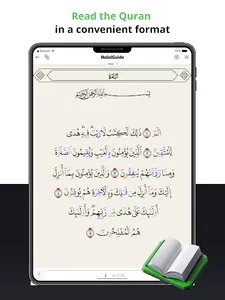 Read the Quran
in a convenient format
HalalGuide
البَقَرَة
بِسْمِ اللَّهِ الرَّحْمَٰنِ الرَّحِيمِ
الٓمٓ ذَٰلِكَ ٱلْكِتَٰبُ لَا رَيْبَ فِيهِ هُدًى
لِّلْمُتَّقِينَ ٱلَّذِينَ يُؤْمِنُونَ بِٱلْغَيْبِ وَيُقِيمُونَ ٱلصَّلَوٰةَ
وَمِمَّا رَزَقْنَٰهُمْ يُنفِقُونَ وَٱلَّذِينَ يُؤْمِنُونَ بِمَآ أُنزِلَ
إِلَيْكَ وَمَآ أُنزِلَ مِن قَبْلِكَ وَبِٱلْءَاخِرَةِ هُمْ يُوقِنُونَ
أُو۟لَٰٓئِكَ عَلَىٰ هُدًى مِّن رَّبِّهِمْ وَأُو۟لَٰٓئِكَ
هُمُ ٱلْمُفْلِحُونَ
2